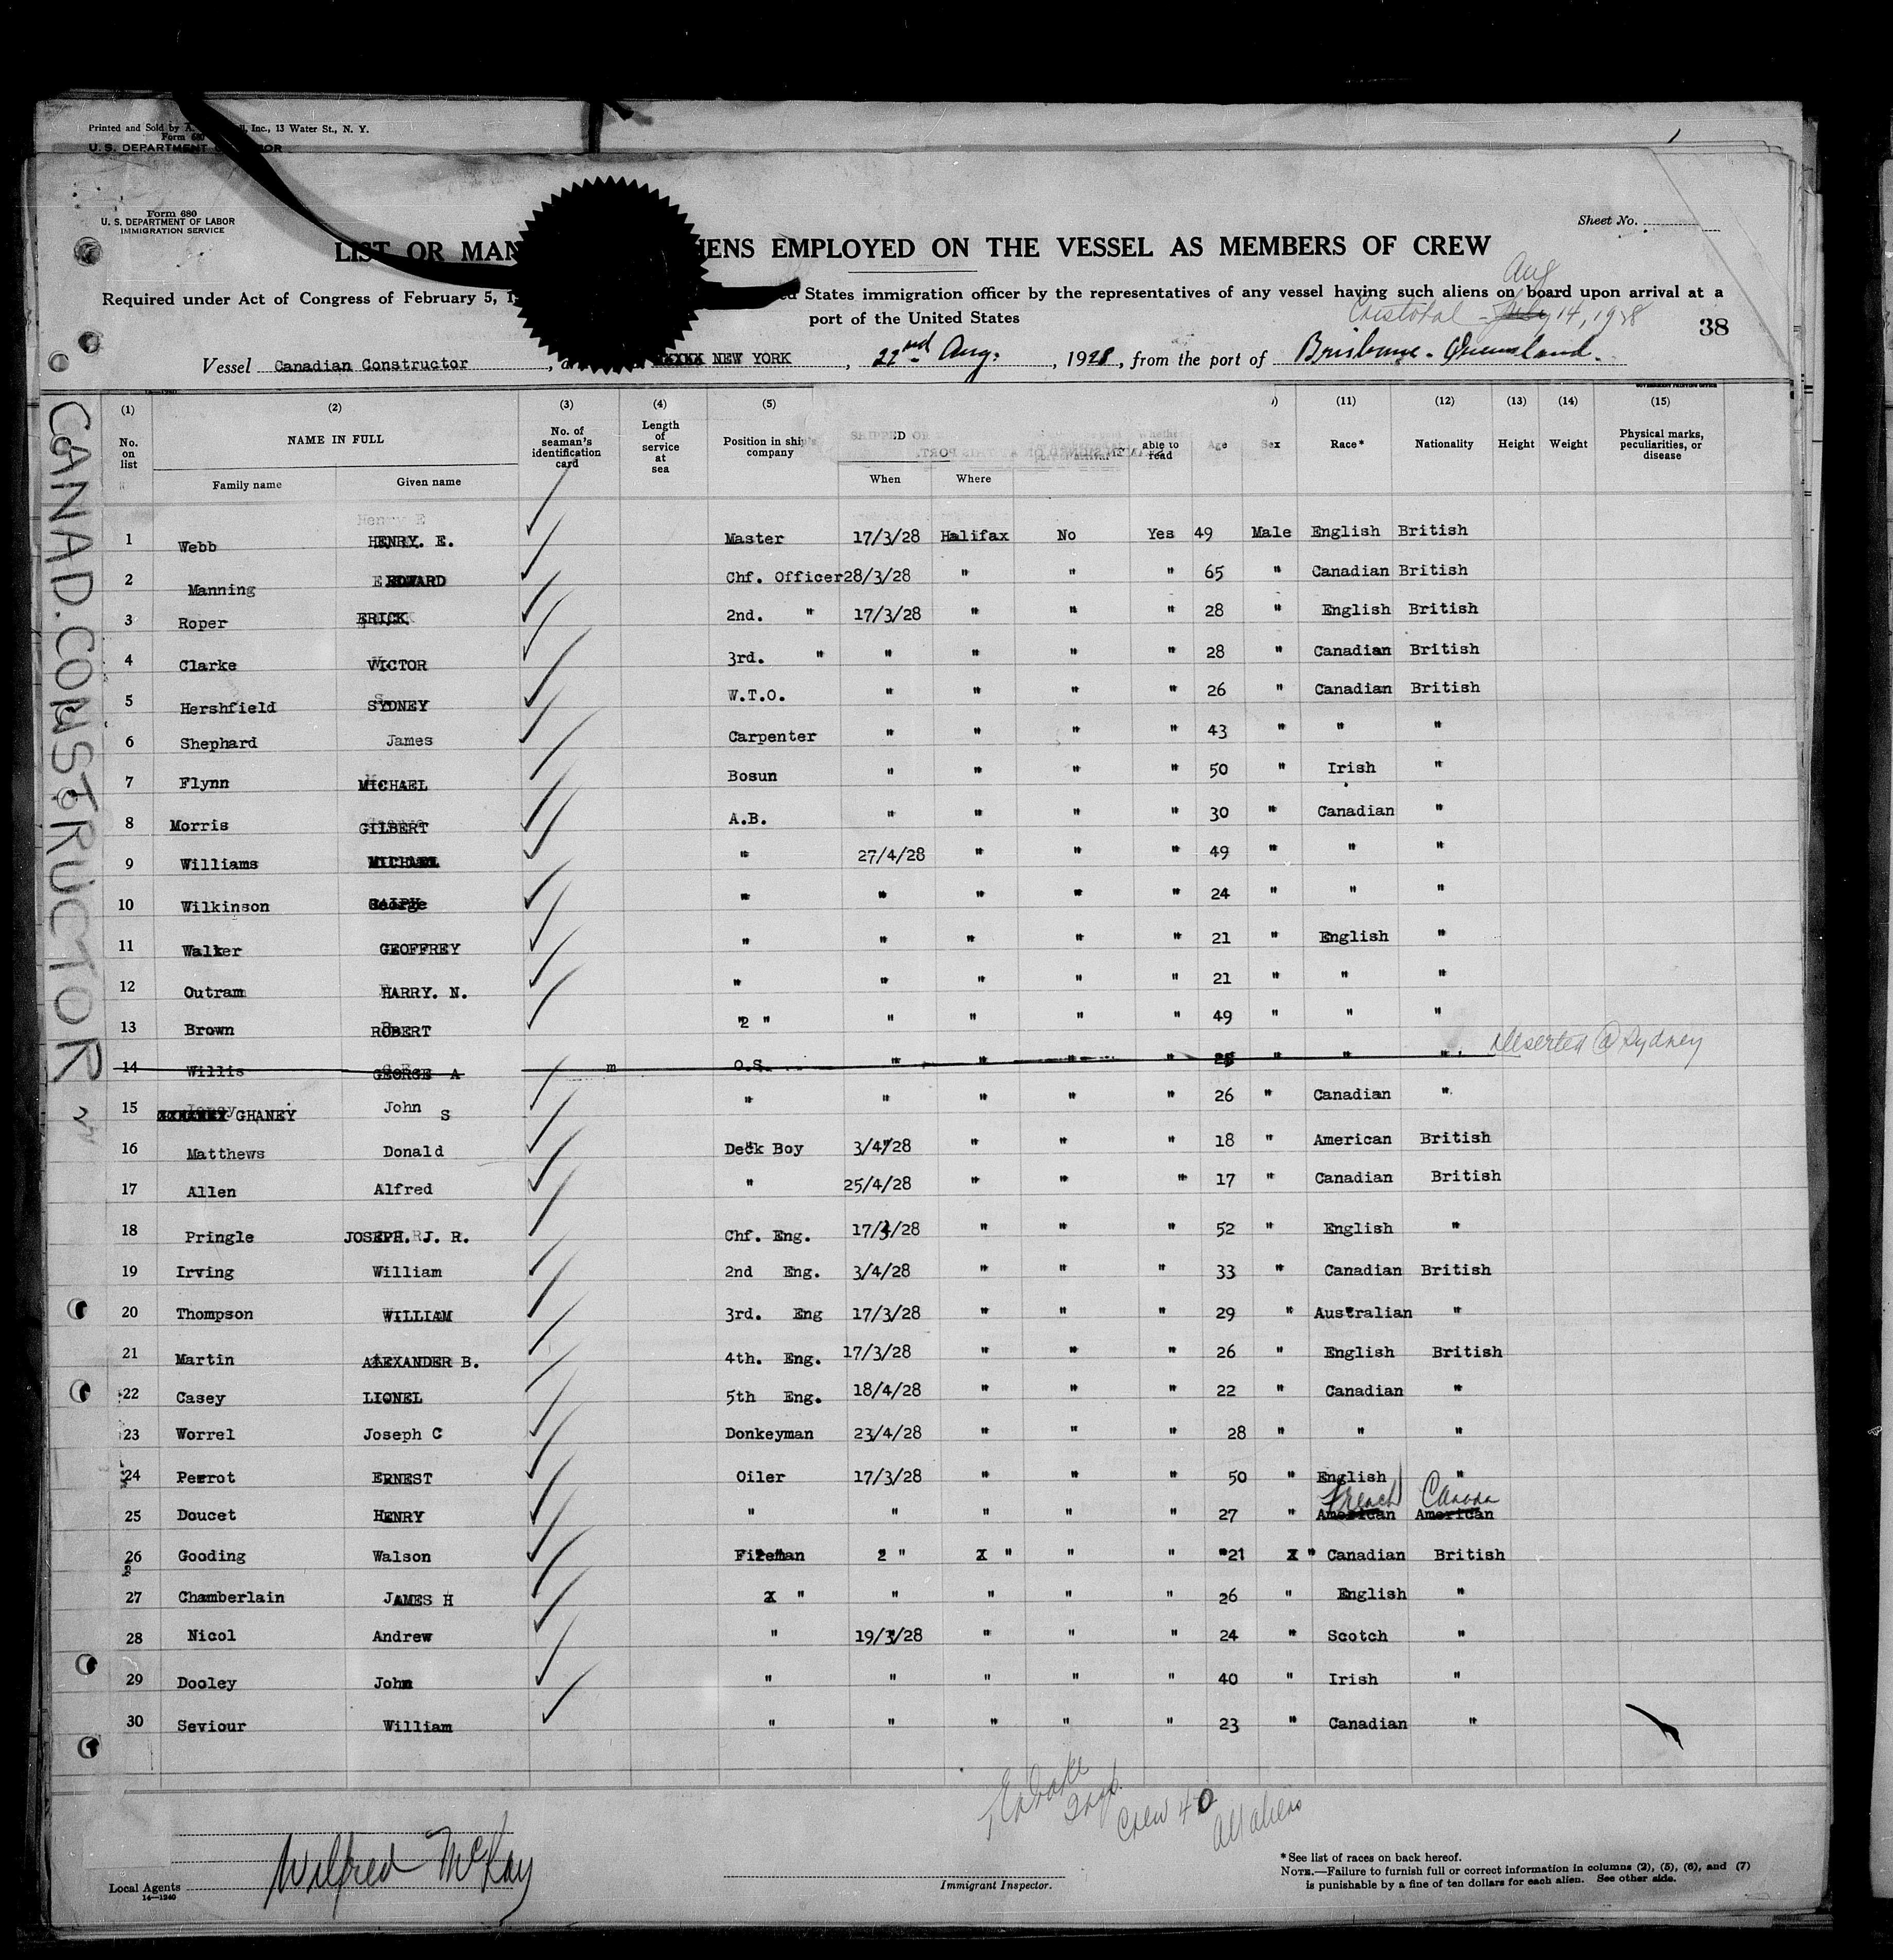 Printed and Sold by A. Inc., 13 Water St., N. Y.
Form 680
U. S. DEPARTMENT OF LABOR
Form 680
U. S. DEPARTMENT OF LABOR
IMMIGRATION SERVICE
Sheet No.
LIST OR MAN IENS EMPLOYED ON THE VESSEL AS MEMBERS OF CREW
Aug
Required under Act of Congress of February 5, 1 ed States immigration officer by the representatives of any vessel having such aliens on board upon arrival at a
port of the United States
Cristobal - July 14, 1928
38
Vessel Canadian Constructor, XXXXX NEW YORK, 22nd Aug. 1928, from the port of Brisbane - Queensland.
CANAD. CONSTRUCTOR
(1) (2) (3) (4) (5) (11) (12) (13) (14) (15)
No. on list NAME IN FULL Family name Given name No. of seaman's identification card Length of service at sea Position in ship's company SHIPPED OR When Where Whether able to read Age Sex Race* Nationality Height Weight Physical marks, peculiarities, or disease
Henry E
1 Webb HENRY. E. Master 17/3/28 Halifax No Yes 49 Male English British
2 Manning EDWARD Chf. Officer 28/3/28 " " " 65 " Canadian British
3 Roper ERICK 2nd. " 17/3/28 " " " 28 " English British
4 Clarke VICTOR 3rd. " " " " " 28 " Canadian British
5 Hershfield SYDNEY W.T.O. " " " " 26 " Canadian British
6 Shephard James Carpenter " " " " 43 " " "
7 Flynn MICHAEL Bosun " " " " 50 " Irish "
8 Morris GILBERT A.B. " " " " 30 " Canadian "
9 Williams MICHAEL " 27/4/28 " " " 49 " " "
10 Wilkinson " " " " " 24 " " "
11 Walker GEOFFREY " " " " " 21 " English "
12 Outram HARRY. N. " " " " " 21 " " "
13 Brown ROBERT "2 " " " " " 49 " " "
14 Willis GEORGE A m O.S. " " " " 25 " " " Deserted @ Sydney
15 GHANEY John S " " " " " 26 " Canadian "
16 Matthews Donald Deck Boy 3/4/28 " " " 18 " American British
17 Allen Alfred " 25/4/28 " " " 17 " Canadian British
18 Pringle JOSEPH. J. R. Chf. Eng. 17/3/28 " " " 52 " English "
19 Irving William 2nd Eng. 3/4/28 " " " 33 " Canadian British
20 Thompson WILLIAM 3rd. Eng 17/3/28 " " " 29 " Australian "
21 Martin ALEXANDER B. 4th. Eng. 17/3/28 " " " 26 " English British
22 Casey LIONEL 5th Eng. 18/4/28 " " " 22 " Canadian "
23 Worrel Joseph C Donkeyman 23/4/28 " " " 28 " " "
24 Perrot ERNEST Oiler 17/3/28 " " " 50 " English "
French Canada
25 Doucet HENRY " " " " " 27 " American American
26 Gooding Walson Fireman 2 " X " " " "21 X " Canadian British
27 Chamberlain JAMES H X " " " " " 26 " English "
28 Nicol Andrew " 19/3/28 " " " 24 " Scotch "
29 Dooley John " " " " " 40 " Irish "
30 Seviour William " " " " " 23 " Canadian "
Insp.
Crew 40
All aliens
Wilfred McKay
Local Agents
14—1240
Immigrant Inspector.
* See list of races on back hereof.
NOTE.—Failure to furnish full or correct information in columns (2), (5), (6), and (7)
is punishable by a fine of ten dollars for each alien. See other side.